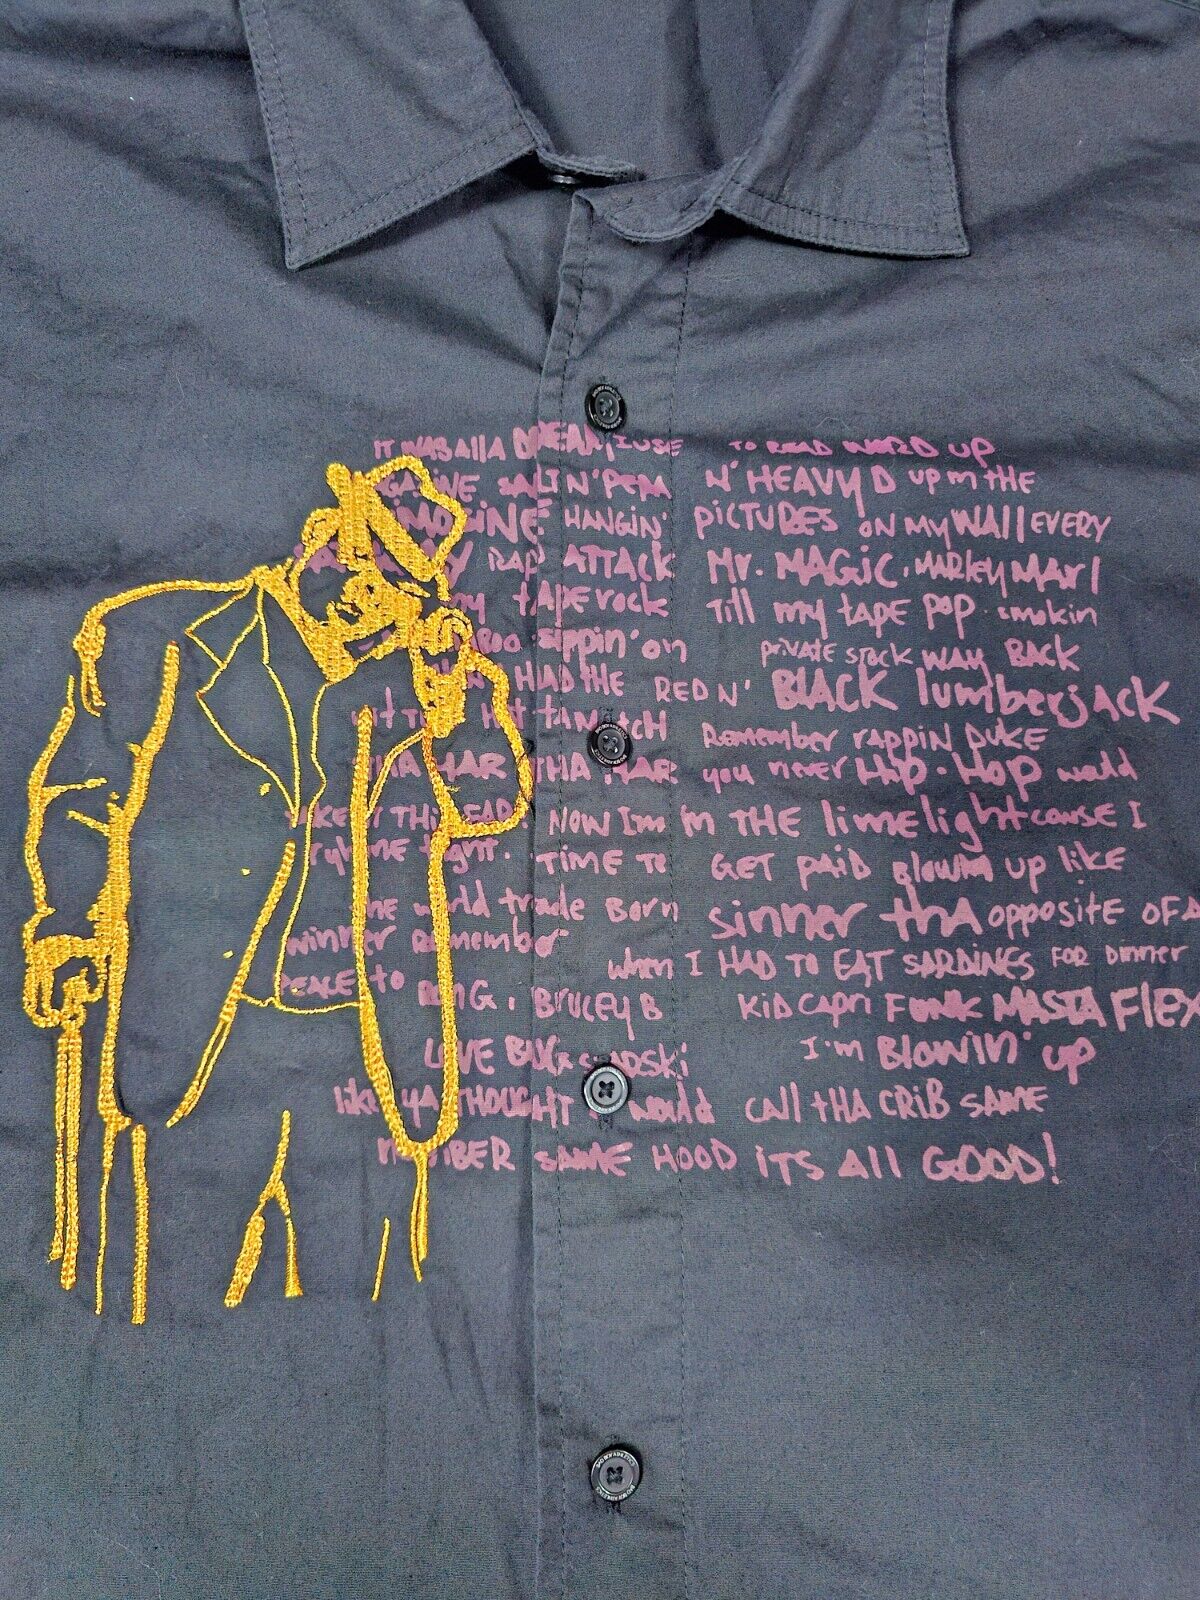 IT WAS All A DREAM I USE TO READ WORD UP
GAZINE SALT N' PEPA N' HEAVY D UP IN THE
LIMOSINE HANGIN' PICTURES ON MY WALL EVERY
RAP ATTACK Mr. MAGIC, MARley MARl
my tape rock Till my tape pop smokin
BOO sippin' on private stock WAY BACK
HAD THE RED N' BLACK lumberjack
HAT TA MATCH Remember rappin DUKE
THA HAR THA HAR you never Hop-Hop would
TAKE IT THIS FAR! NOW I'm in THE limelight cause I
ryhme tight. TIME TO GET PAID Blowin up like
the world trade Born sinner tha opposite OF A
winner Remember when I HAD TO EAT SARDINES FOR Dinner
PEACE to RON G, BRUCEY B KID CAPRI FUNK MASTA FLEX
LOVE BUG STARSKI I'm Blowin' up
like YA THOUGHT I would call tHA CRIB SAME
NUMBER SAME HOOD iTS All GOOD!